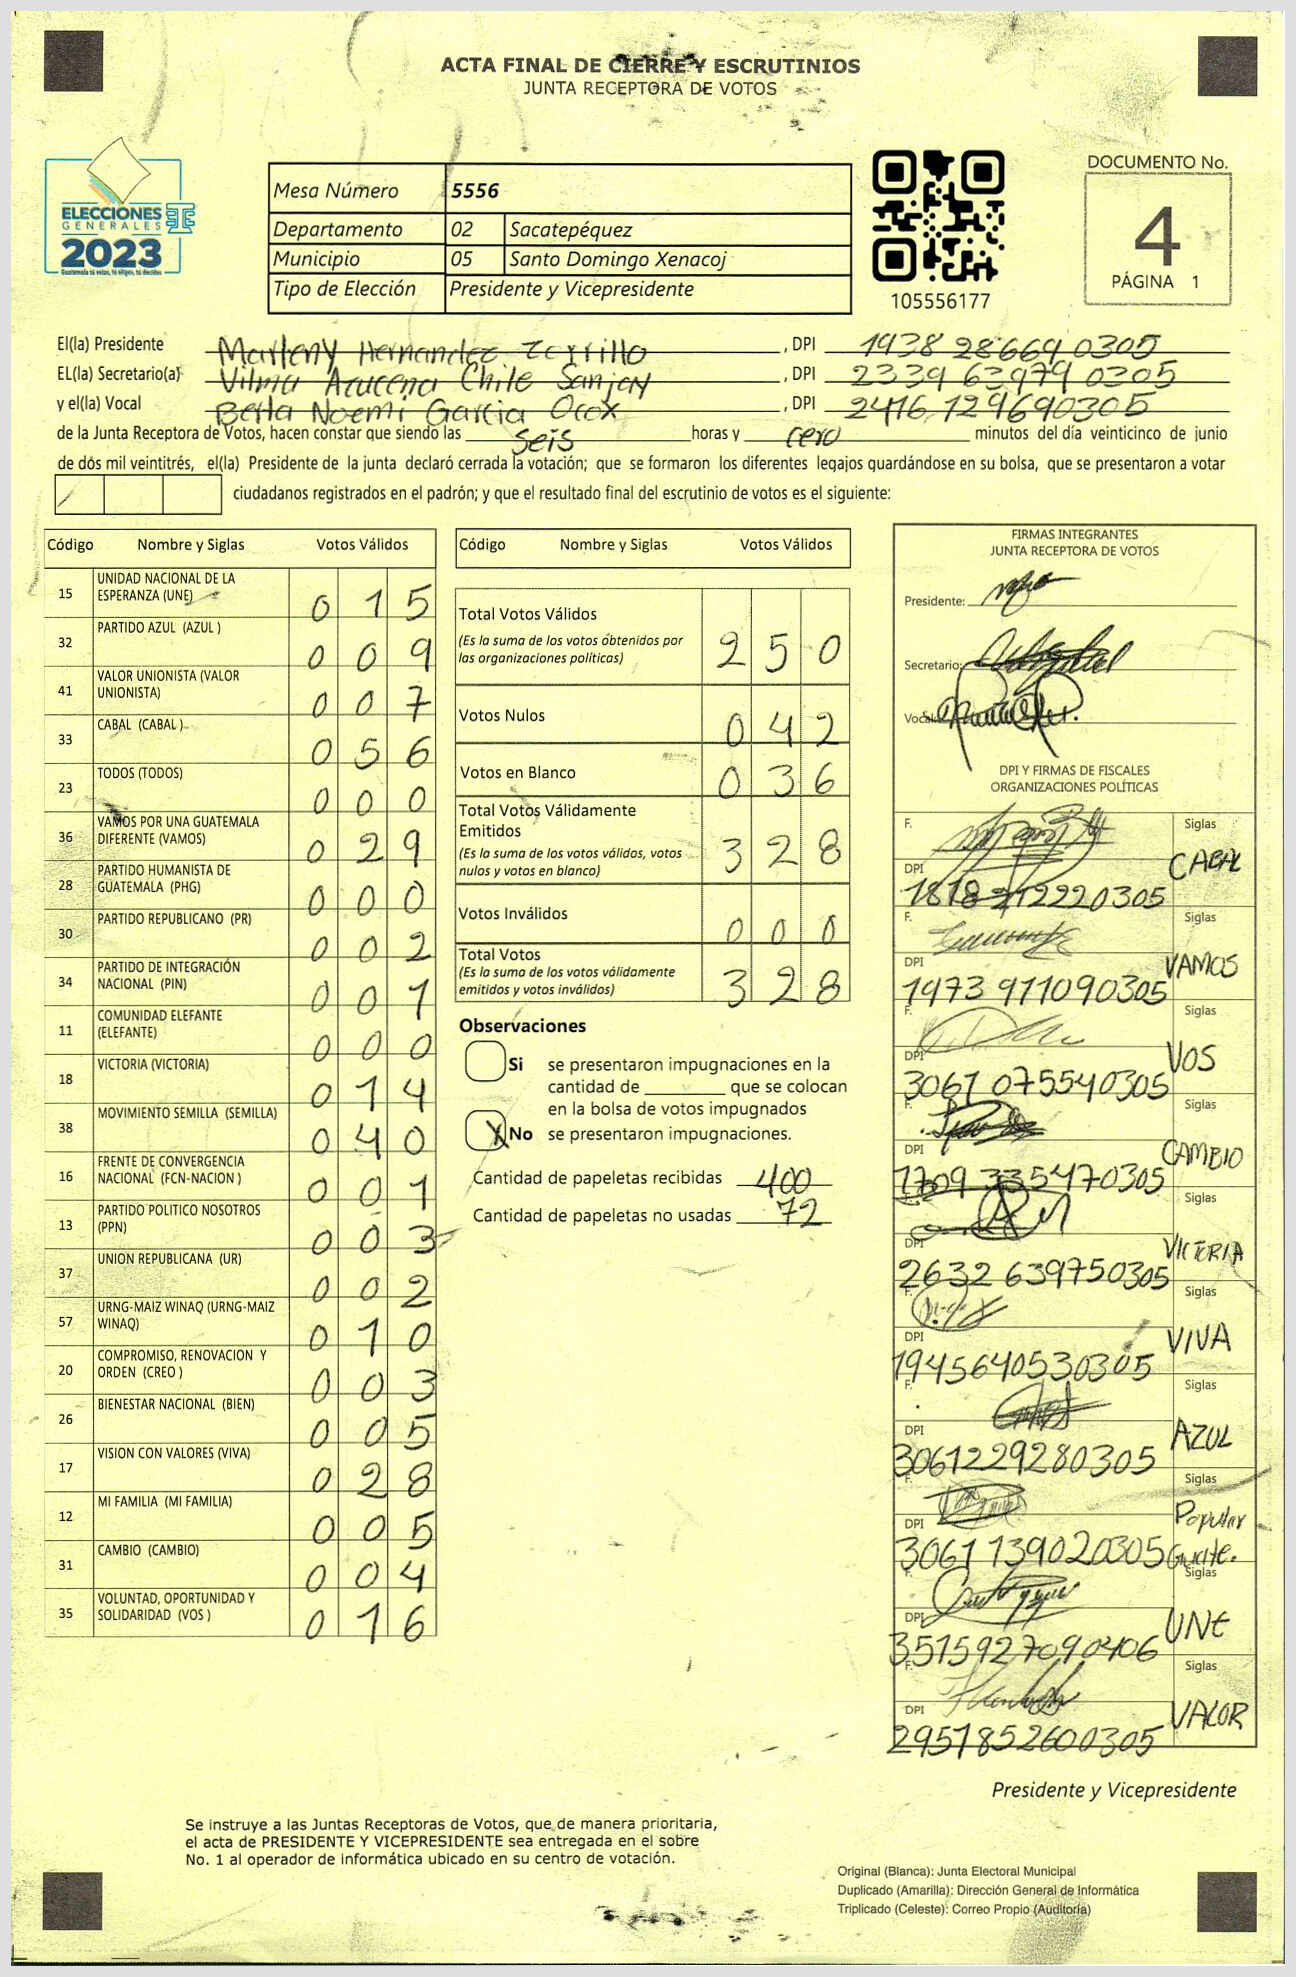 ACTA FINAL DE CIERRE Y ESCRUTINIOS
JUNTA RECEPTORA DE VOTOS
ELECCIONES
GENERALES
2023
Guatemala tú votas, tú eliges, tú decides
Mesa Número 5556
Departamento 02 Sacatepéquez
Municipio 05 Santo Domingo Xenacoj
Tipo de Elección Presidente y Vicepresidente
105556177
DOCUMENTO No.
4
PÁGINA 1
El(la) Presidente Marleny Hernandez Zorrillo , DPI 1938 28669 0305
EL(la) Secretario(a) Vilma Azucena Chile Sanjay , DPI 2339 63979 0305
y el(la) Vocal Berta Noemi Garcia Ocox , DPI 2416 129690305
de la Junta Receptora de Votos, hacen constar que siendo las seis horas y cero minutos del día veinticinco de junio
de dos mil veintitrés, el(la) Presidente de la junta declaró cerrada la votación; que se formaron los diferentes legajos guardándose en su bolsa, que se presentaron a votar
ciudadanos registrados en el padrón; y que el resultado final del escrutinio de votos es el siguiente:
Código Nombre y Siglas Votos Válidos
15 UNIDAD NACIONAL DE LA ESPERANZA (UNE) 0 1 5
32 PARTIDO AZUL (AZUL ) 0 0 9
41 VALOR UNIONISTA (VALOR UNIONISTA) 0 0 7
33 CABAL (CABAL ) 0 5 6
23 TODOS (TODOS) 0 0 0
36 VAMOS POR UNA GUATEMALA DIFERENTE (VAMOS) 0 2 9
28 PARTIDO HUMANISTA DE GUATEMALA (PHG) 0 0 0
30 PARTIDO REPUBLICANO (PR) 0 0 2
34 PARTIDO DE INTEGRACIÓN NACIONAL (PIN) 0 0 1
11 COMUNIDAD ELEFANTE (ELEFANTE) 0 0 0
18 VICTORIA (VICTORIA) 0 1 4
38 MOVIMIENTO SEMILLA (SEMILLA) 0 4 0
16 FRENTE DE CONVERGENCIA NACIONAL (FCN-NACION ) 0 0 1
13 PARTIDO POLITICO NOSOTROS (PPN) 0 0 3
37 UNION REPUBLICANA (UR) 0 0 2
57 URNG-MAIZ WINAQ (URNG-MAIZ WINAQ) 0 1 0
20 COMPROMISO, RENOVACION Y ORDEN (CREO ) 0 0 3
26 BIENESTAR NACIONAL (BIEN) 0 0 5
17 VISION CON VALORES (VIVA) 0 2 8
12 MI FAMILIA (MI FAMILIA) 0 0 5
31 CAMBIO (CAMBIO) 0 0 4
35 VOLUNTAD, OPORTUNIDAD Y SOLIDARIDAD (VOS ) 0 1 6
Código Nombre y Siglas Votos Válidos
Total Votos Válidos 2 5 0
(Es la suma de los votos obtenidos por
las organizaciones políticas)
Votos Nulos 0 4 2
Votos en Blanco 0 3 6
Total Votos Válidamente
Emitidos 3 2 8
(Es la suma de los votos válidos, votos
nulos y votos en blanco)
Votos Inválidos 0 0 0
Total Votos 3 2 8
(Es la suma de los votos válidamente
emitidos y votos inválidos)
Observaciones
Si se presentaron impugnaciones en la
cantidad de ________ que se colocan
en la bolsa de votos impugnados
X No se presentaron impugnaciones.
Cantidad de papeletas recibidas 400
Cantidad de papeletas no usadas 72
FIRMAS INTEGRANTES
JUNTA RECEPTORA DE VOTOS
Presidente:
Secretario:
Vocal:
DPI Y FIRMAS DE FISCALES
ORGANIZACIONES POLÍTICAS
F. Siglas CABAL
DPI 1818 212220305
F. Siglas VAMOS
DPI 1473 911090305
F. Siglas VOS
DPI 3061 075540305
F. Siglas CAMBIO
DPI 1709 335470305
F. Siglas VICTORIA
DPI 2632 639750305
F. Siglas VIVA
DPI 1945640530305
F. Siglas AZUL
DPI 3061229280305
F. Siglas Popular Guate.
DPI 3061 139020305
F. Siglas UNE
DPI 3515927090406
F. Siglas VALOR
DPI 2951852600305
Presidente y Vicepresidente
Se instruye a las Juntas Receptoras de Votos, que de manera prioritaria,
el acta de PRESIDENTE Y VICEPRESIDENTE sea entregada en el sobre
No. 1 al operador de informática ubicado en su centro de votación.
Original (Blanca): Junta Electoral Municipal
Duplicado (Amarilla): Dirección General de Informática
Triplicado (Celeste): Correo Propio (Auditoría)